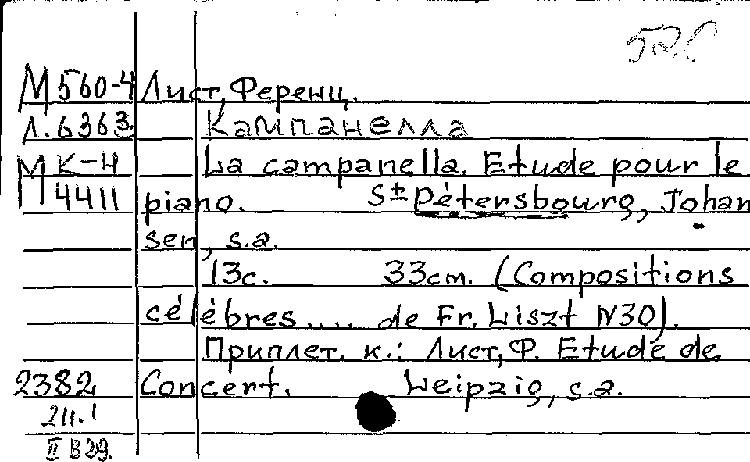 М560-4 Лист, Ференц.
Л.6363 Кампанелла
М К-4 La campanella. Etude pour le
4411 piano. St Pétersbourg, Johan
sen, s.a.
13с. 33см. (Compositions
célèbres .... de Fr. Liszt N30).
Приплет. к.: Лист, Ф. Etude de
2382 Concert. Leipzig, s.a.
211.1
II В 29.